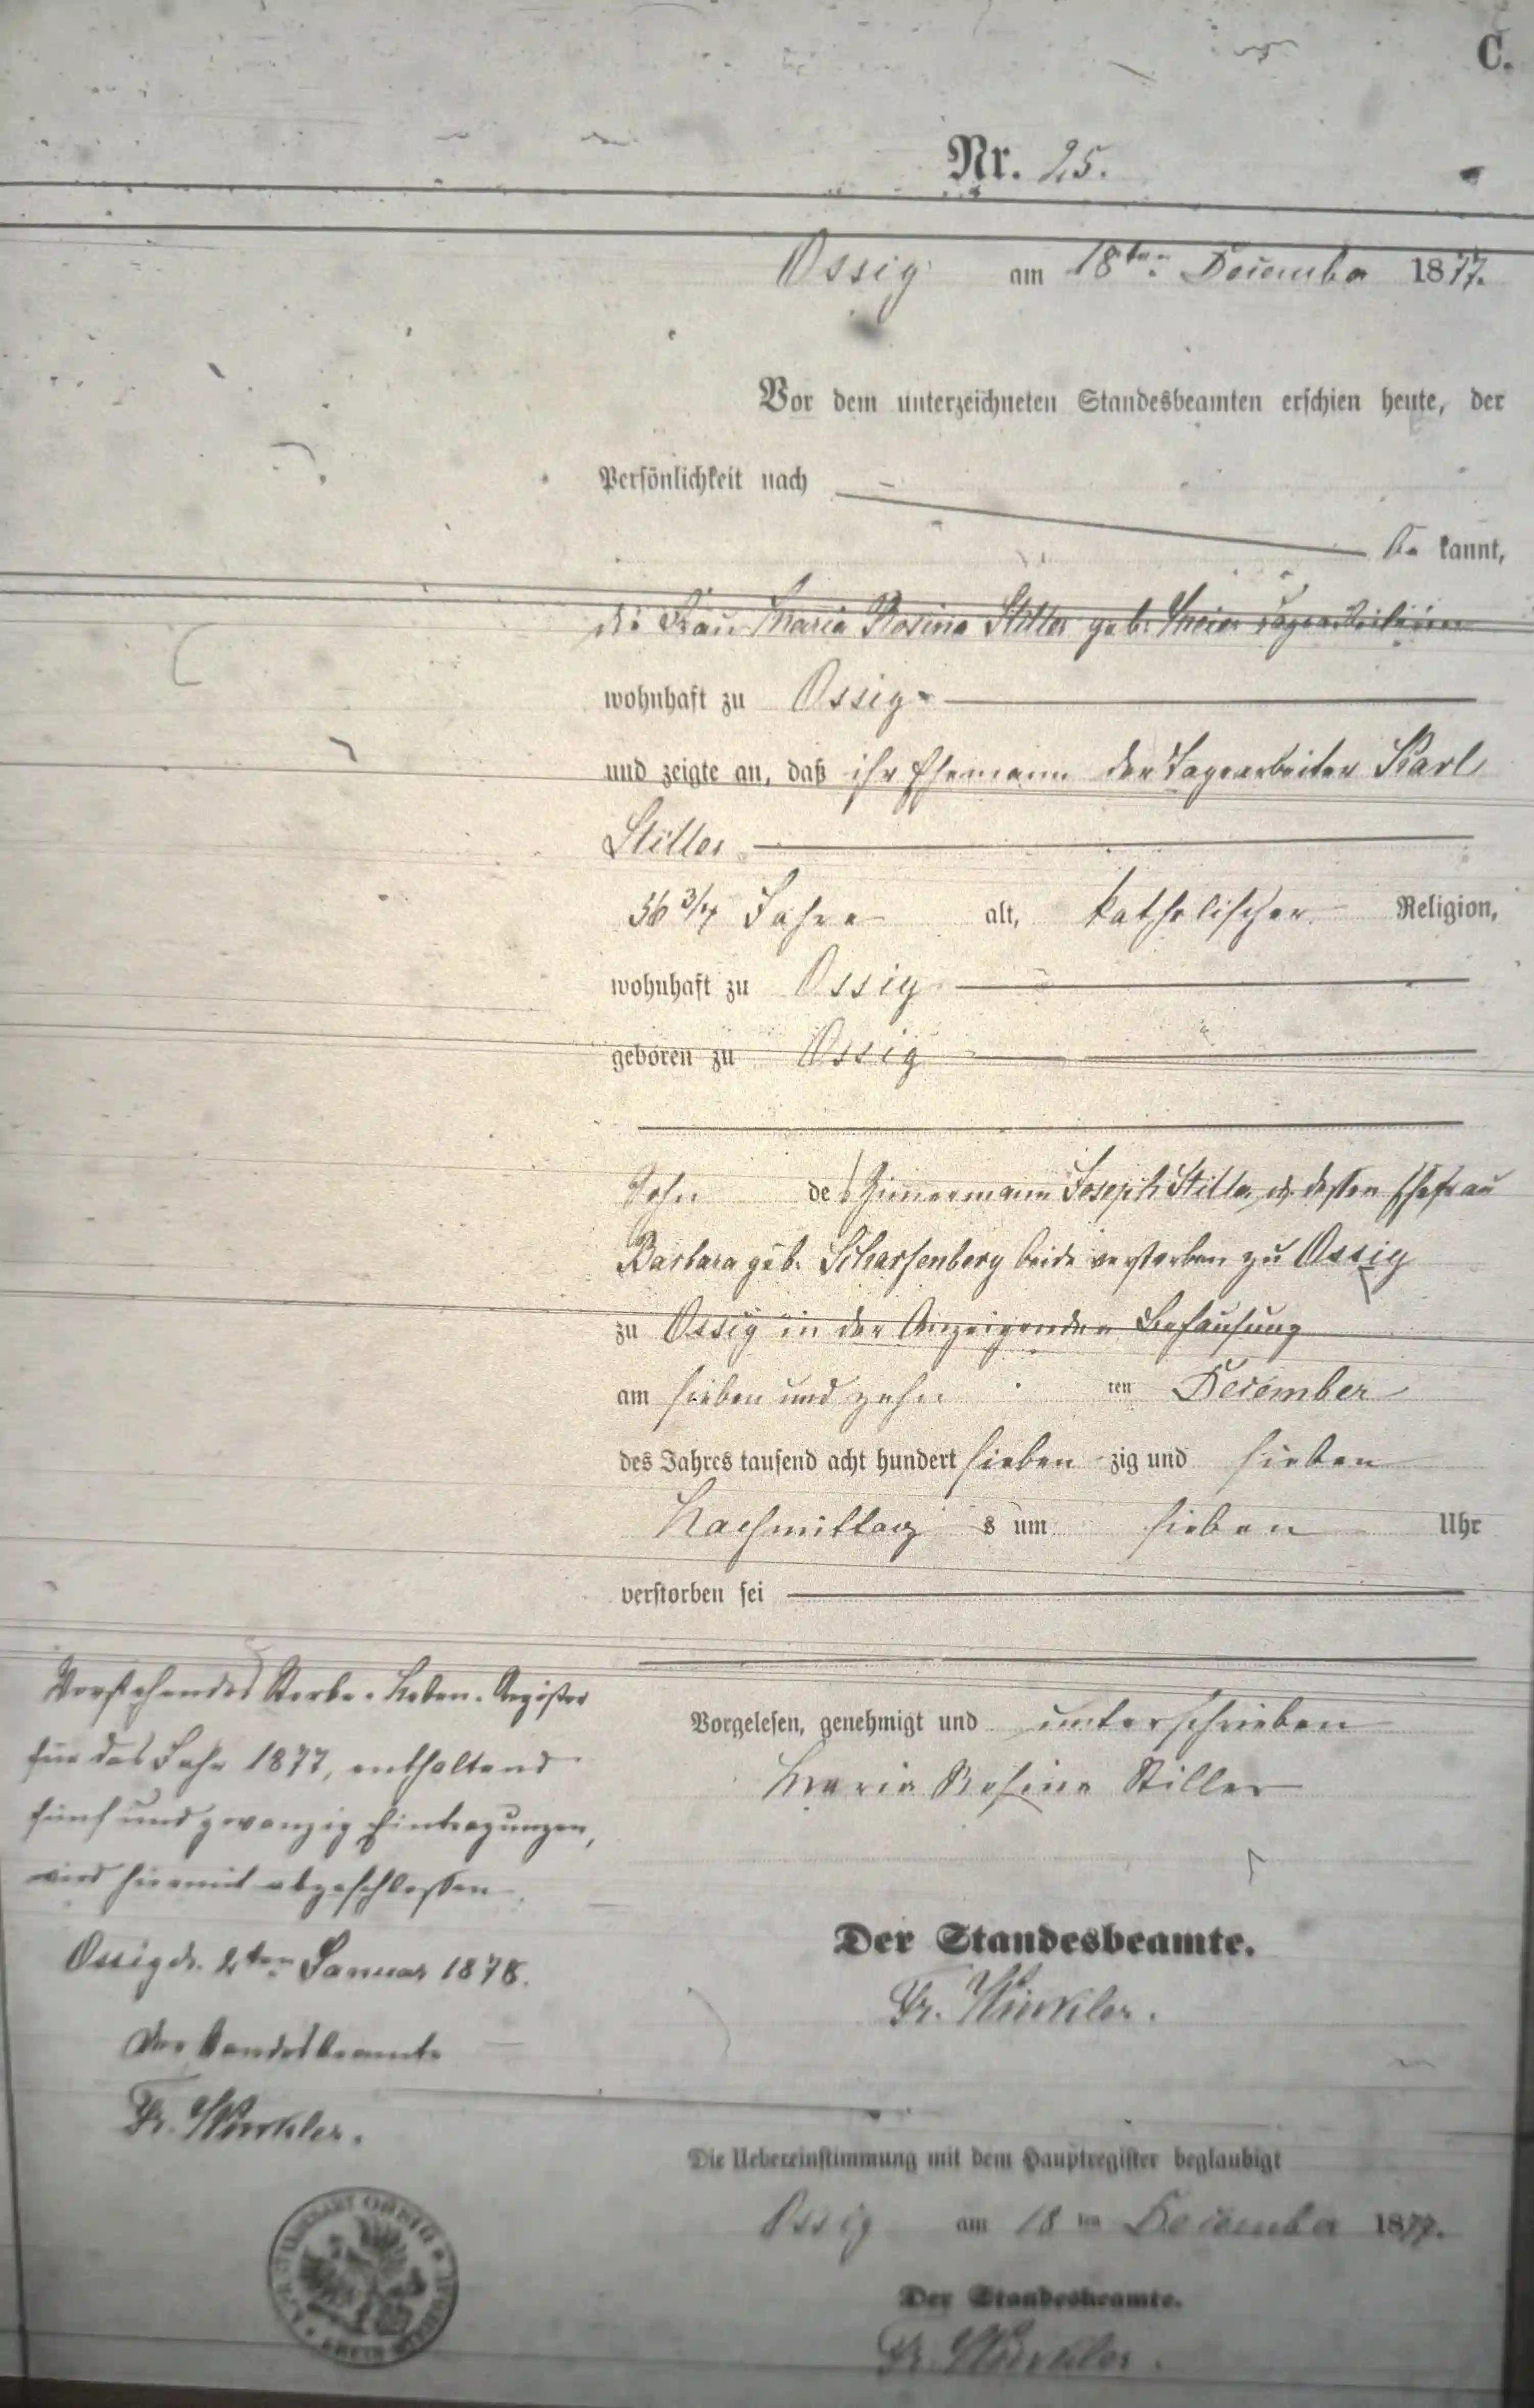 C.
Nr. 25.
Ossig am 18ten December 1877.
Vor dem unterzeichneten Standesbeamten erschien heute, der
Persönlichkeit nach
be kannt,
die Frau Maria Rosina Stiller geb. Tagearbeiterin
wohnhaft zu Ossig
und zeigte an, daß ihr Ehemann der Tagearbeiter Karl
Stiller
56 3/4 Jahre alt, katholischer Religion,
wohnhaft zu Ossig
geboren zu Ossig
Sohn des Zimmermann Joseph Stiller u. dessen Ehefrau
Barbara geb. Scharfenberg beide verstorben zu Ossig
zu Ossig in der Anzeigenden Behausung
am sieben und zehn ten December
des Jahres tausend acht hundert sieben zig und sieben
Nachmittag s um sieben Uhr
verstorben sei
Vorgelesen, genehmigt und unterschrieben
Maria Rosina Stiller
Der Standesbeamte.
Fr. Winkler.
Vorstehendes Sterbe-Neben-Register
für das Jahr 1877, enthaltend
fünf und zwanzig Eintragungen,
wird hiermit abgeschlossen.
Ossig d. 2ten Januar 1878.
Der Standesbeamte
Fr. Winkler.
Die Uebereinstimmung mit dem Hauptregister beglaubigt
Ossig am 18 ten December 1877.
Der Standesbeamte.
Fr. Winkler.